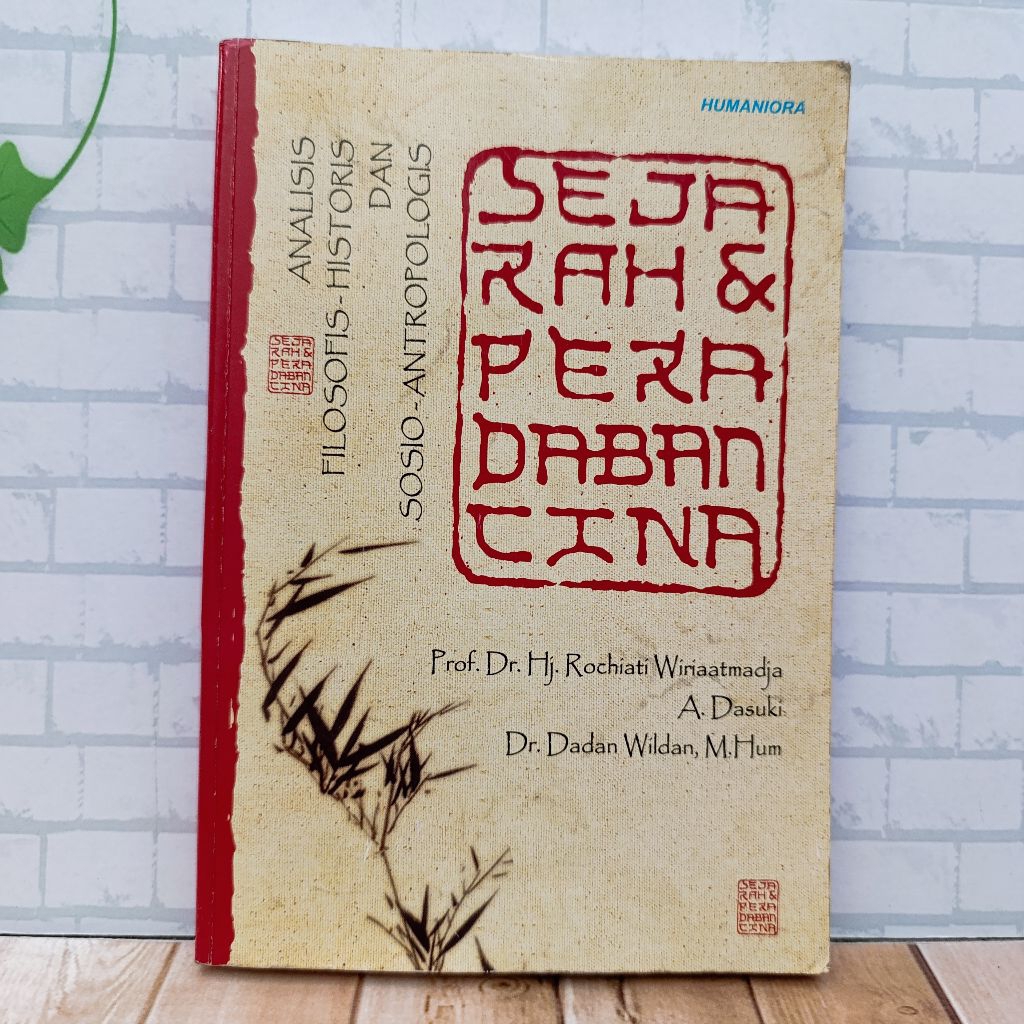 HUMANIORA
SEJA
RAH &
PERA
DABAN
CINA
ANALISIS
FILOSOFIS-HISTORIS
DAN
SOSIO-ANTROPOLOGIS
SEJA
RAH &
PERA
DABAN
CINA
Prof. Dr. Hj. Rochiati Wiriaatmadja
A. Dasuki
Dr. Dadan Wildan, M.Hum
SEJA
RAH &
PERA
DABAN
CINA